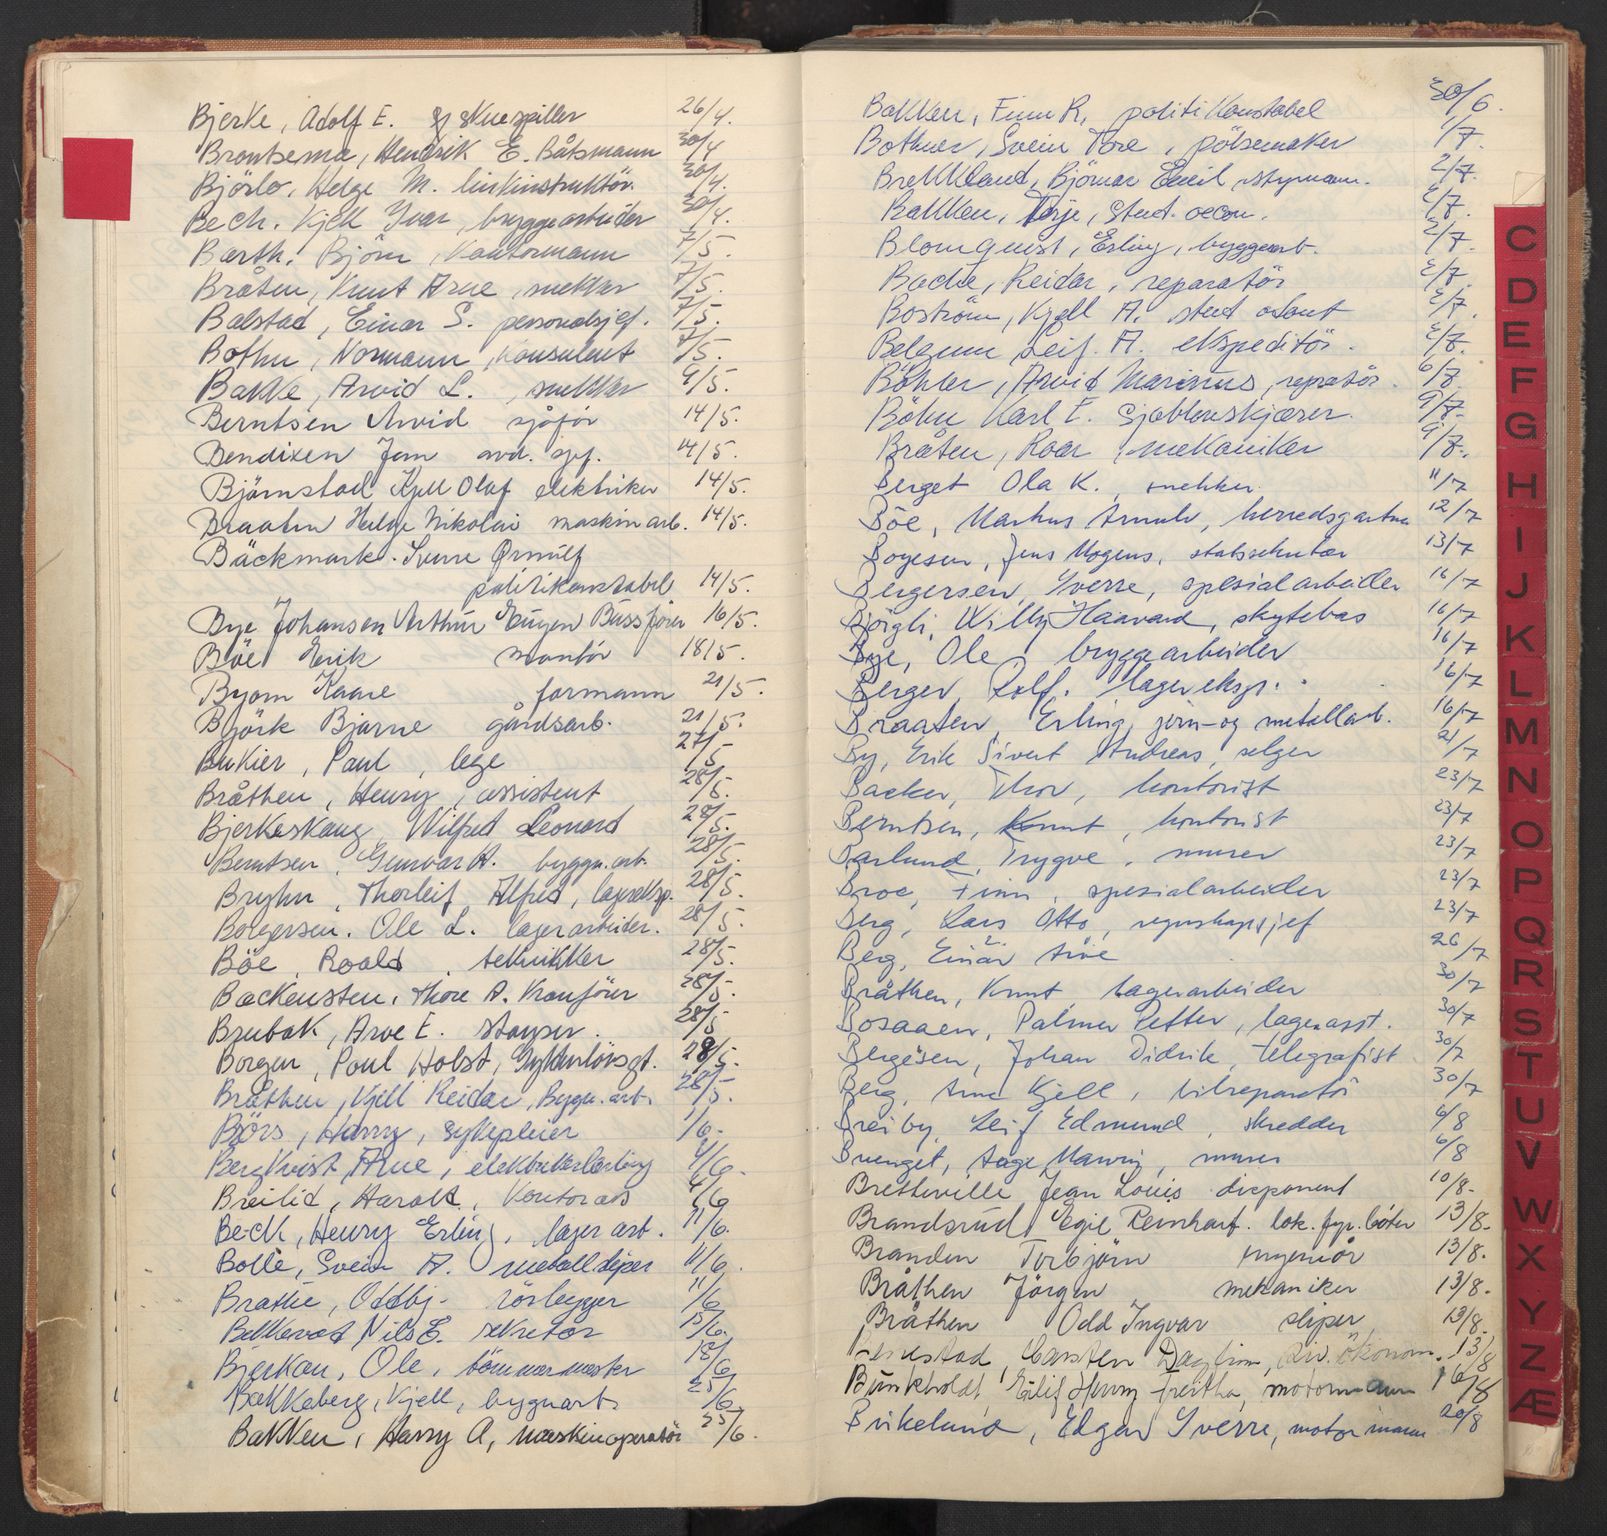 Bjerke, Adolf E. skuespiller 26/4.
Brontsema, Hendrik E. Båtsmann 30/4
Björlo, Helge M. linkinstruktör. 30/4.
Bech. Kjell Ivar, bryggearbeider 30/4.
Barth. Björn, Kontormann 7/5.
Bråten, Knut Arne, snekker 7/5.
Balstad, Einar S. personalsjef. 7/5.
Bothn, Normann, konsulent 7/5.
Bakke, Arvid L., snekker 9/5.
Berntsen Arvid sjåför 14/5.
Bendixen Jan avd. sjef. 14/5.
Björnstad Kjell Olaf elektriker 14/5.
Braaten Helge Nikolai maskinarb. 14/5.
Bäckmark. Sverre Ørnulf
politikonstabel 14/5.
Bye Johansen Arthur Eugen Bussfører 16/5.
Böe Erik montör 18/5.
Byom Kaare formann 21/5.
Björk Bjarne gårdsarb. 21/5.
Bukier, Paul, lege 27/5
Bråthen, Henry, assistent 28/5.
Bjerkeskaug, Wilfred Leonard 28/5.
Berntsen, Gunvar A. byggn.arb. 28/5.
Bryhn, Thorleif Alfred, lagereksp. 28/5.
Borgersen. Ole L. lagerarbeider. 28/5.
Böe, Roald, tekniker 28/5.
Backensten, Thore A. Kranförer 28/5.
Brubak, Arve E. 28/5
Borgen, Poul Holst, Gyldenlövsgt. 28/5.
Bråthen, Kjell Reidar, Byggn.arb. 28/5.
Börs, Harry, sykepleier 1/6.
Bergkvist, Arne, elektrikerlærling 4/6.
Breilid, Harald, Kontorass 4/6
Bech, Henry Erling, lager arb. 11/6.
Bolle, Svein A. metallsliper 11/6.
Brathe, Oddbj. rörlegger 11/6
Bekkevad Nils E. sekretær 15/6.
Bjerkan, Ole, tömmermester 18/6
Bakkeberg, Kjell, bygnarb. 25/6
Bakken, Harry A, maskinoperatör 25/6.
Bakken, Finn R, politikonstabel 30/6.
Bothner, Svein Tore, pölsemaker 1/7.
Brekkland, Björnar Emil, styrmann. 2/7.
Bakken, Terje, Stud. oecon. 2/7.
Blomquist, Erling, byggearb. 2/7.
Bache, Reidar, reparatör 2/7.
Boström, Kjell A. stud odont 2/7.
Belgum Leif. A. ekspeditör. 2/7.
Böhler, Arvid Marinus, repratör. 6/7.
Böhn Karl E. Sjablonskjærer. 9/7.
Bråten, Roar, mekaniker 9/7.
Berget Ola K., snekker. 11/7
Böe, Markus, herredsgartner 12/7
Boyesen, Jens Mogens, statssekretær 13/7
Bergersen, Sverre, spesialarbeider 16/7
Björgli, Willy Haavard, skytebas 16/7
Bye, Ole, bryggearbeider 16/7
Berger, Rolf. lagereksp. 16/7
Braaten, Erling, jern- og metallarb. 16/7
By, Erik Sivert Andreas, selger 21/7
Backer, Thor, kontorist 23/7
Berntsen, Knut, kontorist 23/7
Barlund, Trygve, murer 23/7
Broe, Finn, spesialarbeider 23/7
Berg, Lars Otto, regnskapssjef 23/7
Berg, Einar Åke 26/7
Bråthen, Knut, lagerarbeider 30/7
Bosaaen, Palmer Petter, lagerasst. 30/7
Bergesen, Johan Didrik, telegrafist 30/7
Berg, Arne Kjell, bilreparatör 30/7
Breiby, Leif Edmund, skredder 6/8
Brenget, Aage Mauritz, murer 6/8
Bretteville Jean Louis. disponent 10/8.
Brandsrud Egil Reinhart. lok. fyr. böter 13/8.
Branden Torbjörn ingeniör 13/8.
Bråthen Jörgen mekaniker 13/8.
Bråthen Odd Ingvar sliper 13/8.
Carsten Dagfinn, siv. økonom. 13/8
Bunkholdt Eilif Henry Fretha, motormann 16/8
Birkelund, Edgar Sverre, motormann 20/8
C
D
E
F
G
H
I
J
K
L
M
N
O
P
Q
R
S
T
U
V
W
X
Y
Z
Æ